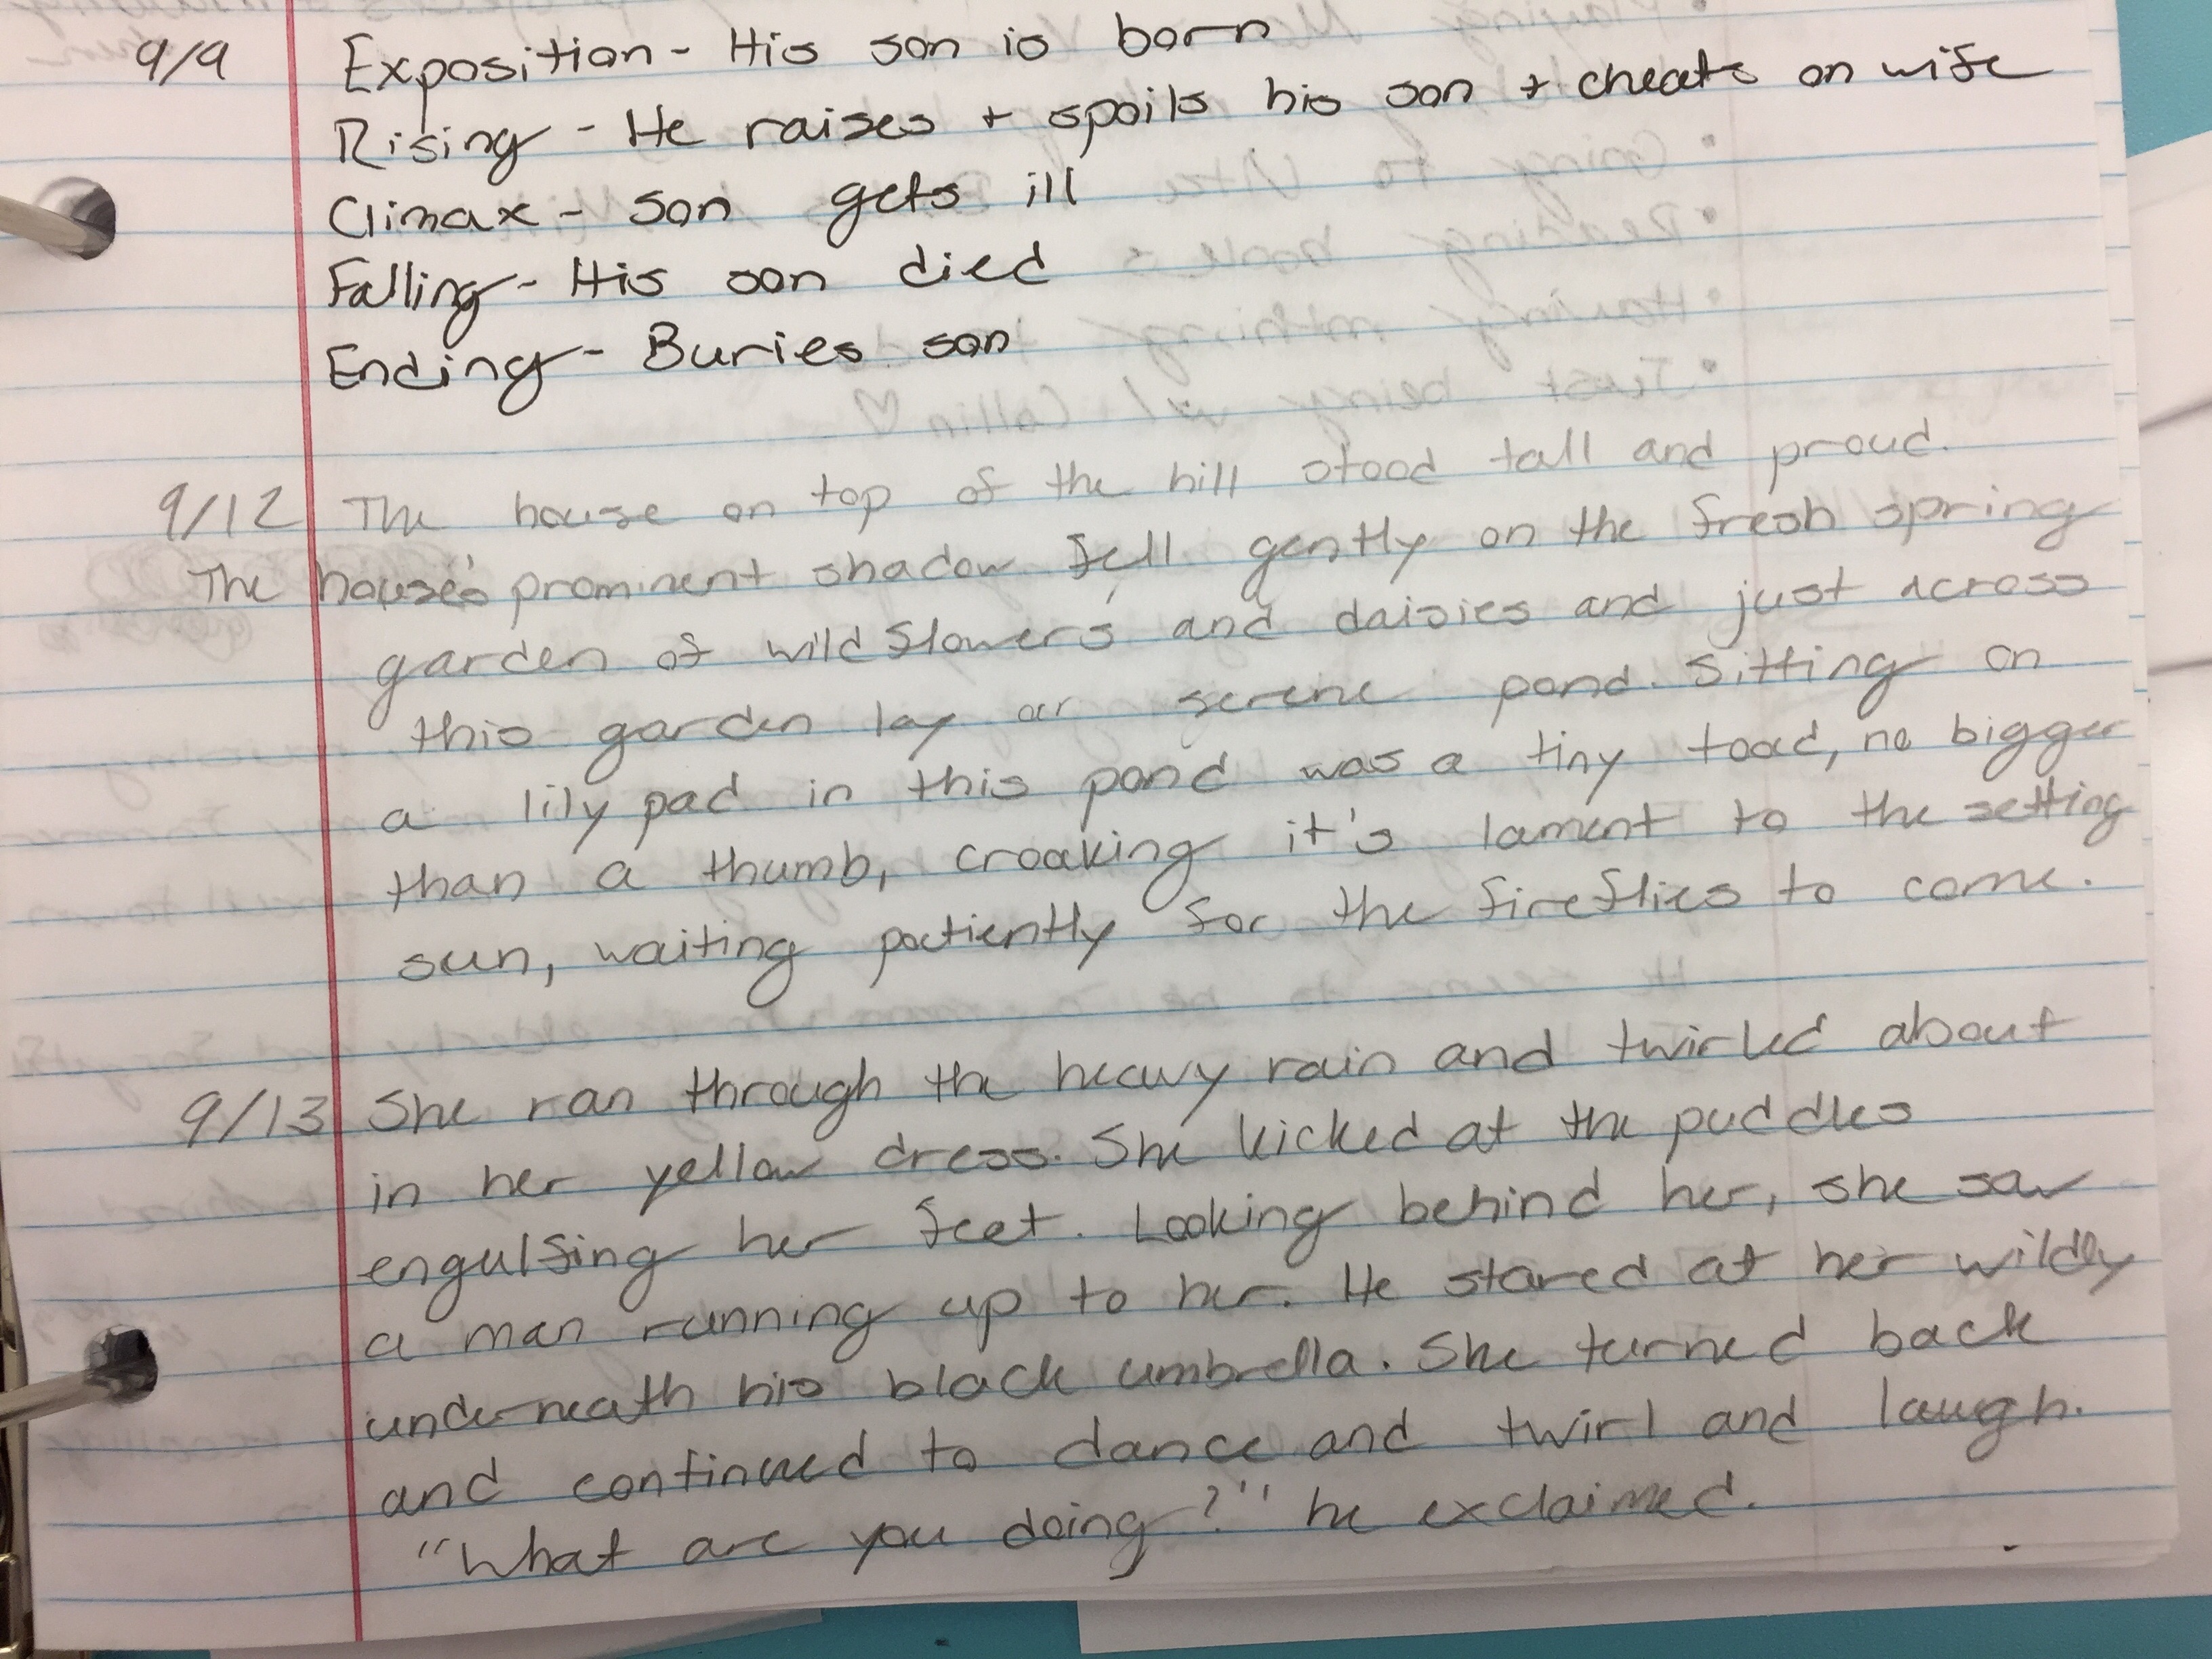 9/9 Exposition - His son is born
Rising - He raises + spoils his son + cheats on wife
Climax - son gets ill
Falling - His son died
Ending - Buries son
9/12 The house on top of the hill stood tall and proud.
The house's prominent shadow fell gently on the fresh spring
garden of wildflowers and daisies and just across
this garden lay a serene pond. Sitting on
a lily pad in this pond was a tiny toad, no bigger
than a thumb, croaking it's lament to the setting
sun, waiting patiently for the fireflies to come.
9/13 She ran through the heavy rain and twirled about
in her yellow dress. She kicked at the puddles
engulfing her feet. Looking behind her, she saw
a man running up to her. He stared at her wildly
underneath his black umbrella. She turned back
and continued to dance and twirl and laugh.
"What are you doing?" he exclaimed.